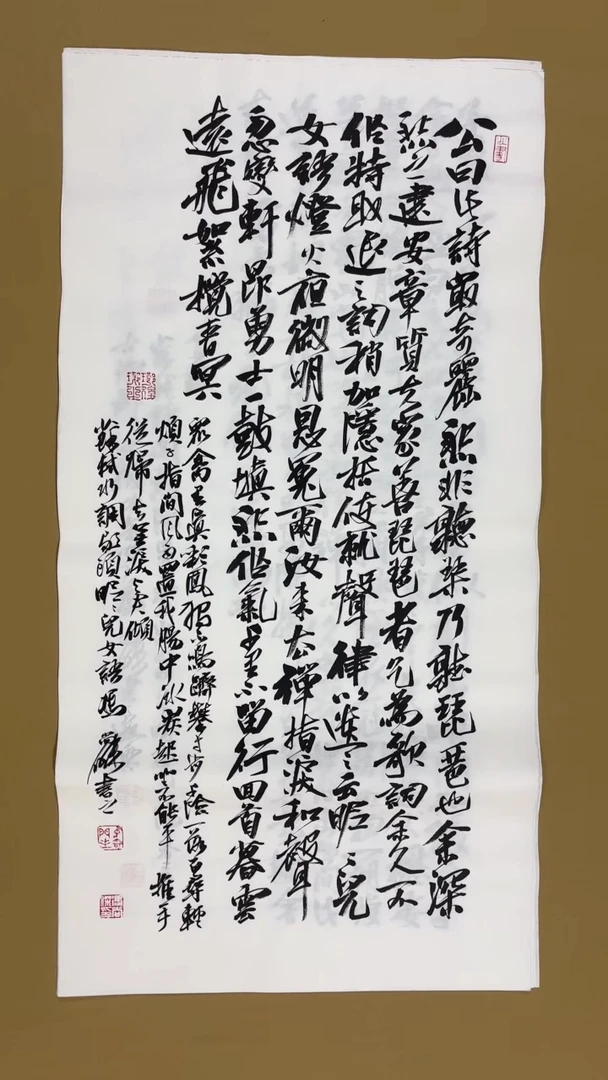 公曰此詩最奇麗然非聽琴乃聽琵琶也余深
然之建安章質夫家善琵琶者乞為歌詞余久不
作特取退之詞稍加隱括使就聲律以遺之云昵昵兒
女語燈火夜微明恩冤爾汝來去彈指淚和聲
忽變軒昂勇士一鼓填然作氣千里不留行回首暮雲
遠飛絮攪青冥
眾禽里真彩鳳獨不鳴躋攀寸步千險一落百尋輕
煩子指間風雨置我腸中冰炭起坐不能平推手
從歸去無淚與君傾
蘇軾水調歌頭昵昵兒女語馮書之